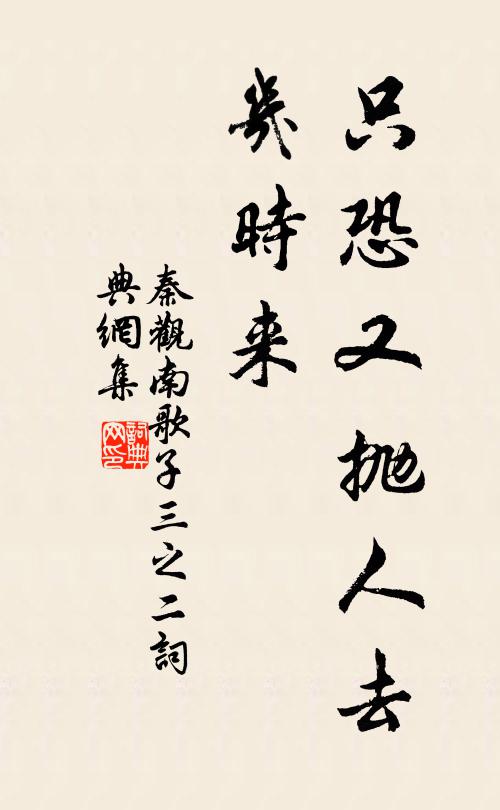 只恐又抛人去
幾時来
秦觀南歌子三之二詞
典網集
詞典网印